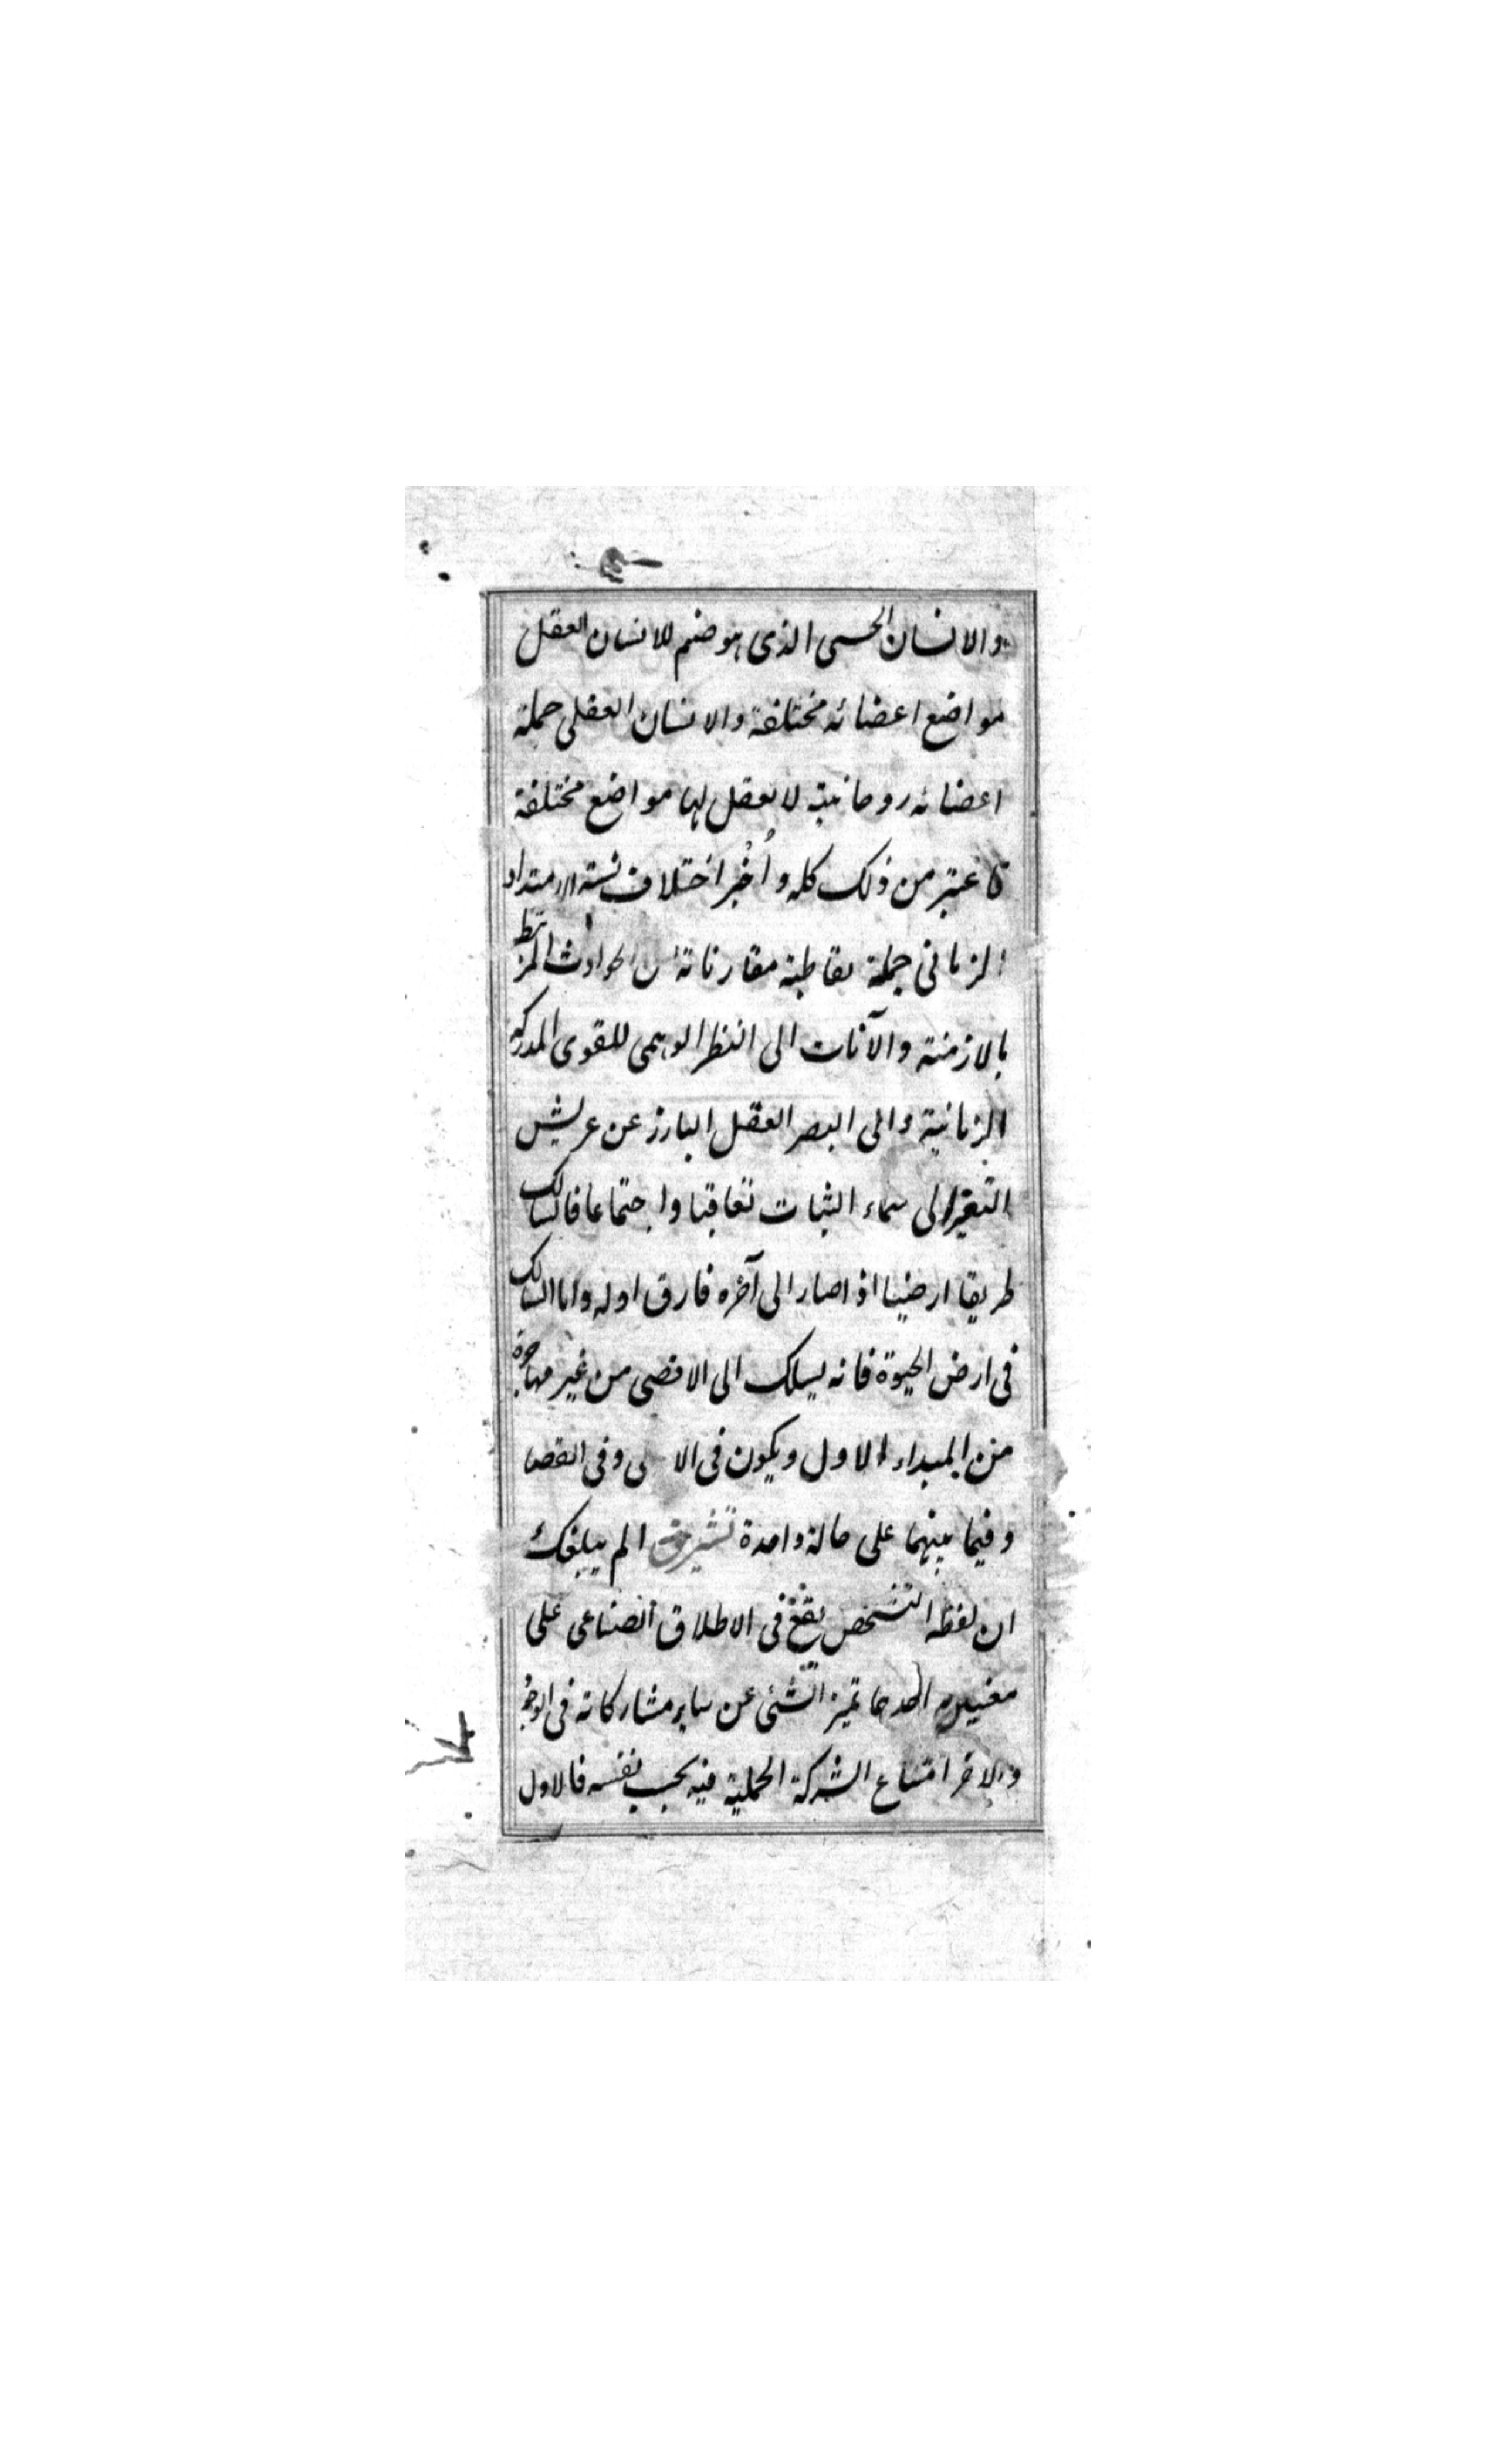 والانسان الحسى الذى هو صنم للانسان العقل
مواضع اعضائه مختلفة والانسان العقلى جملة
اعضائه روحانية لا يعقل لها مواضع مختلفة
فاعتبر من ذلك كله واُخْبُر اختلاف نسبة الامتداد
الزمانى جملة بقاطبة مقارناته من الحوادث المرتبطة
بالازمنة والآنات الى النظر الوهمى للقوى المدركة
الزمانية والى البصر العقل البارز عن عريش
التغير الى سماء الثبات تعاقبا واجتماعا فالسالك
طريقا ارضيا اذا صار الى آخره فارق اوله واما السالك
فى ارض الحيوة فانه يسلك الى الاقصى من غير مهاجرة
من المبداء الاول ويكون فى وفى القصا
وفيما بينهما على حالة واحدة تشريق الم يبلغك
ان لفظه التشخص يقع فى الاطلاق الصناعى على
معنيين احدهما تميز الشئى عن ساير مشاركاته فى الوجود
والاخر امتناع الشركة الحملية فيه بحسب نفسه فالاول